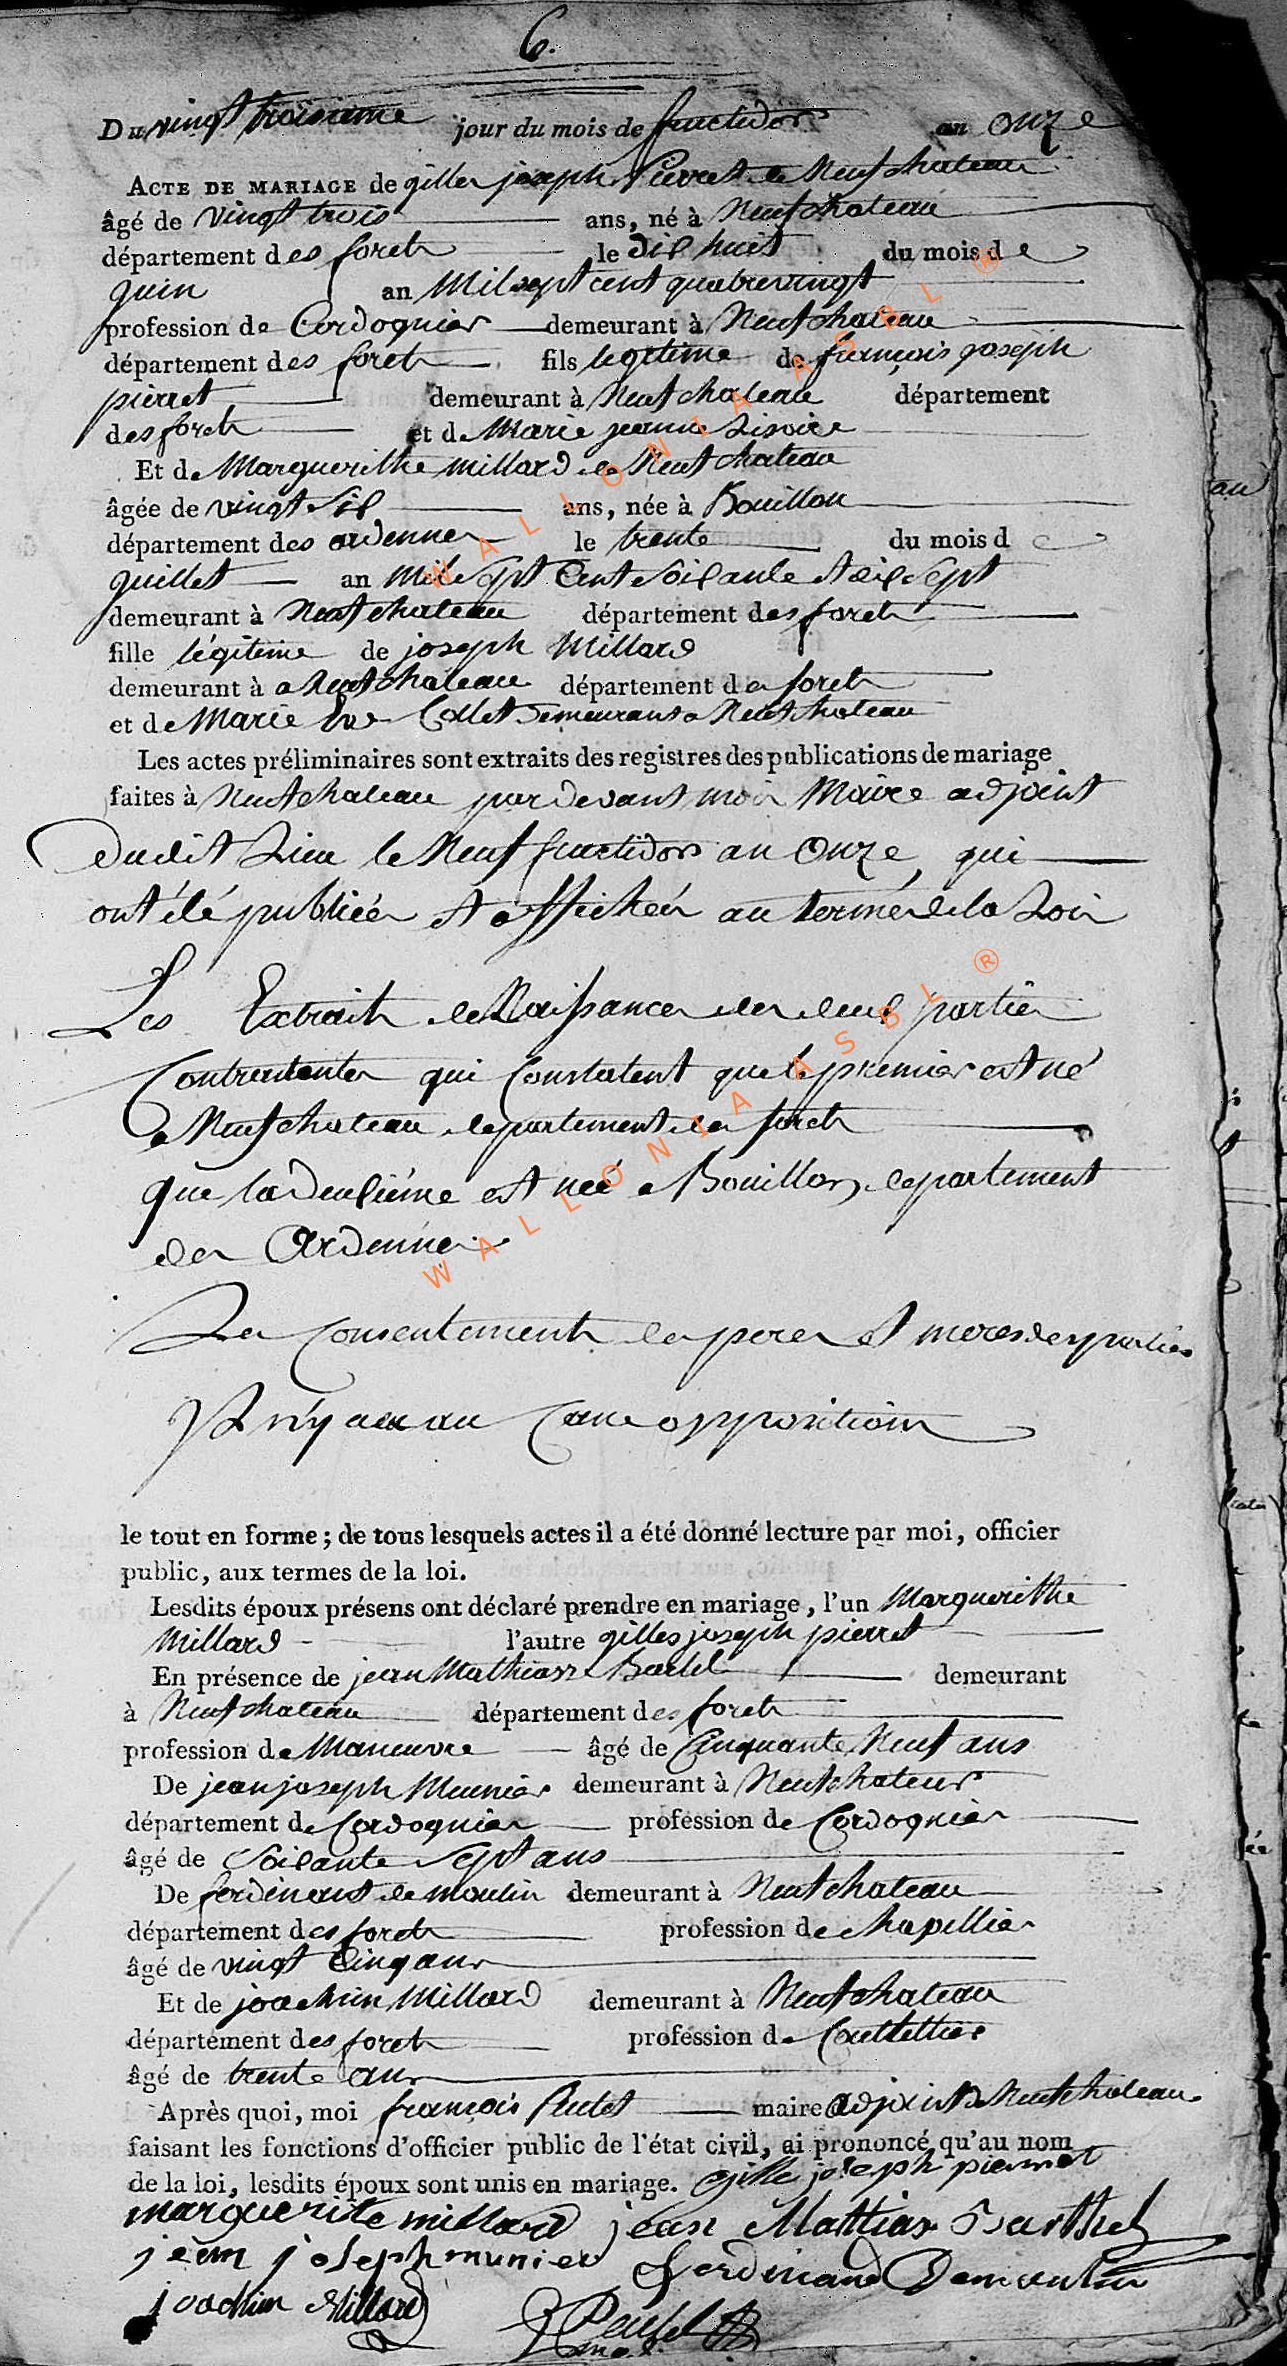 6.
Du vingt troisieme jour du mois de fructidor an onze
ACTE DE MARIAGE de gilles joseph Pierret de Neufchateau
âgé de vingt trois ans, né à Neufchateau
département des foret le dix huit du mois de
quin an Mil sept cent quatrevingt
profession de Cordoqnier demeurant à Neufchateau
département des foret fils legitime de françois joseph
pierret demeurant à Neufchateau département
des foret et de Marie jeanne
Et de Marguerithe Millard de Neufchateau
âgée de vingt six ans, née à Bouillon
département des ardennes le trente du mois d
quillet an Mil Sept Cent Soixante et dix Sept
demeurant à Neufchateau département des foret
fille légitime de joseph Millard
demeurant à a Neufchateau département des foret
et de Marie Eve Collet Demeurant a Neufchateau
Les actes préliminaires sont extraits des registres des publications de mariage
faites à Neufchateau pardevant moi Maire adjoint
dudit Lieu le Neuf fructidor an Onze, qui
ont été publiées et affichées au termes de la Loi
Les Extrait de Naissances des deux parties
Contractentes qui Constatent que le premier est né
a Neufchateau departement des foret
que la Deuxiéme est neé a Bouillon departement
des Ardennes
Les Consentements des peres et meres des parties
Il n'y a eu aucune opposition
le tout en forme ; de tous lesquels actes il a été donné lecture par moi, officier
public, aux termes de la loi.
Lesdits époux présens ont déclaré prendre en mariage, l'un Marguerithe
Millard l'autre gilles joseph pierret
En présence de jean Mathias Bartel demeurant
à Neufchateau département des foret
profession de Maneuvre âgé de Cinquante Neuf ans
De jean joseph Munier demeurant à Neufchateau
département de Cordoqnier profession de Cordoqnier
âgé de Soixante Sept ans
De ferdinant de moulin demeurant à Neufchateau
département des foret profession de chapellier
âgé de vingt Cinq ans
Et de joachim Millard demeurant à Neufchateau
département des foret profession de Couttellier
âgé de trente ans
Après quoi, moi françois maire adjoint de Neufchateau
faisant les fonctions d'officier public de l'état civil, ai prononcé qu'au nom
de la loi, lesdits époux sont unis en mariage. gille joseph pierret
marguerite millard jean Mattias Barthel
jean joseph munier ferdinand Demoulin
joachim Millard
WALLONIA ASBL ®
WALLONIA ASBL ®